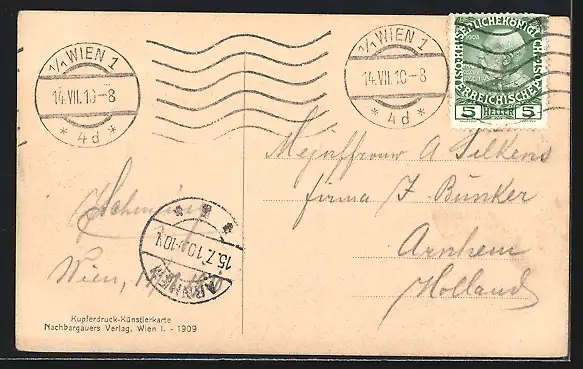 1/1 WIEN 1
14.VII.10-8
* 4d *
1/1 WIEN 1
14.VII.10-8
* 4d *
1908
5 HELLER 5
Mejuffrouw A Silkens
firma J. Bunker
Arnhem
Holland
ARNHEM
15.7.10
Wien,
Kupferdruck-Künstlerkarte
Nachbargauers Verlag, Wien I. - 1909